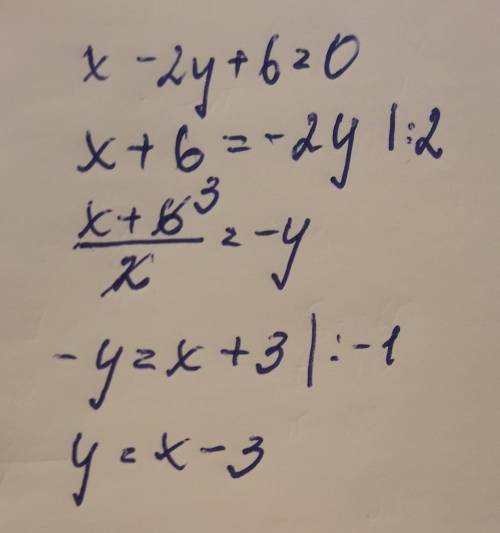 x - 2y + 6 = 0
x + 6 = -2y |:2
(x + 6̸ ³)/2̸ = -y
-y = x + 3 |: -1
y = x - 3